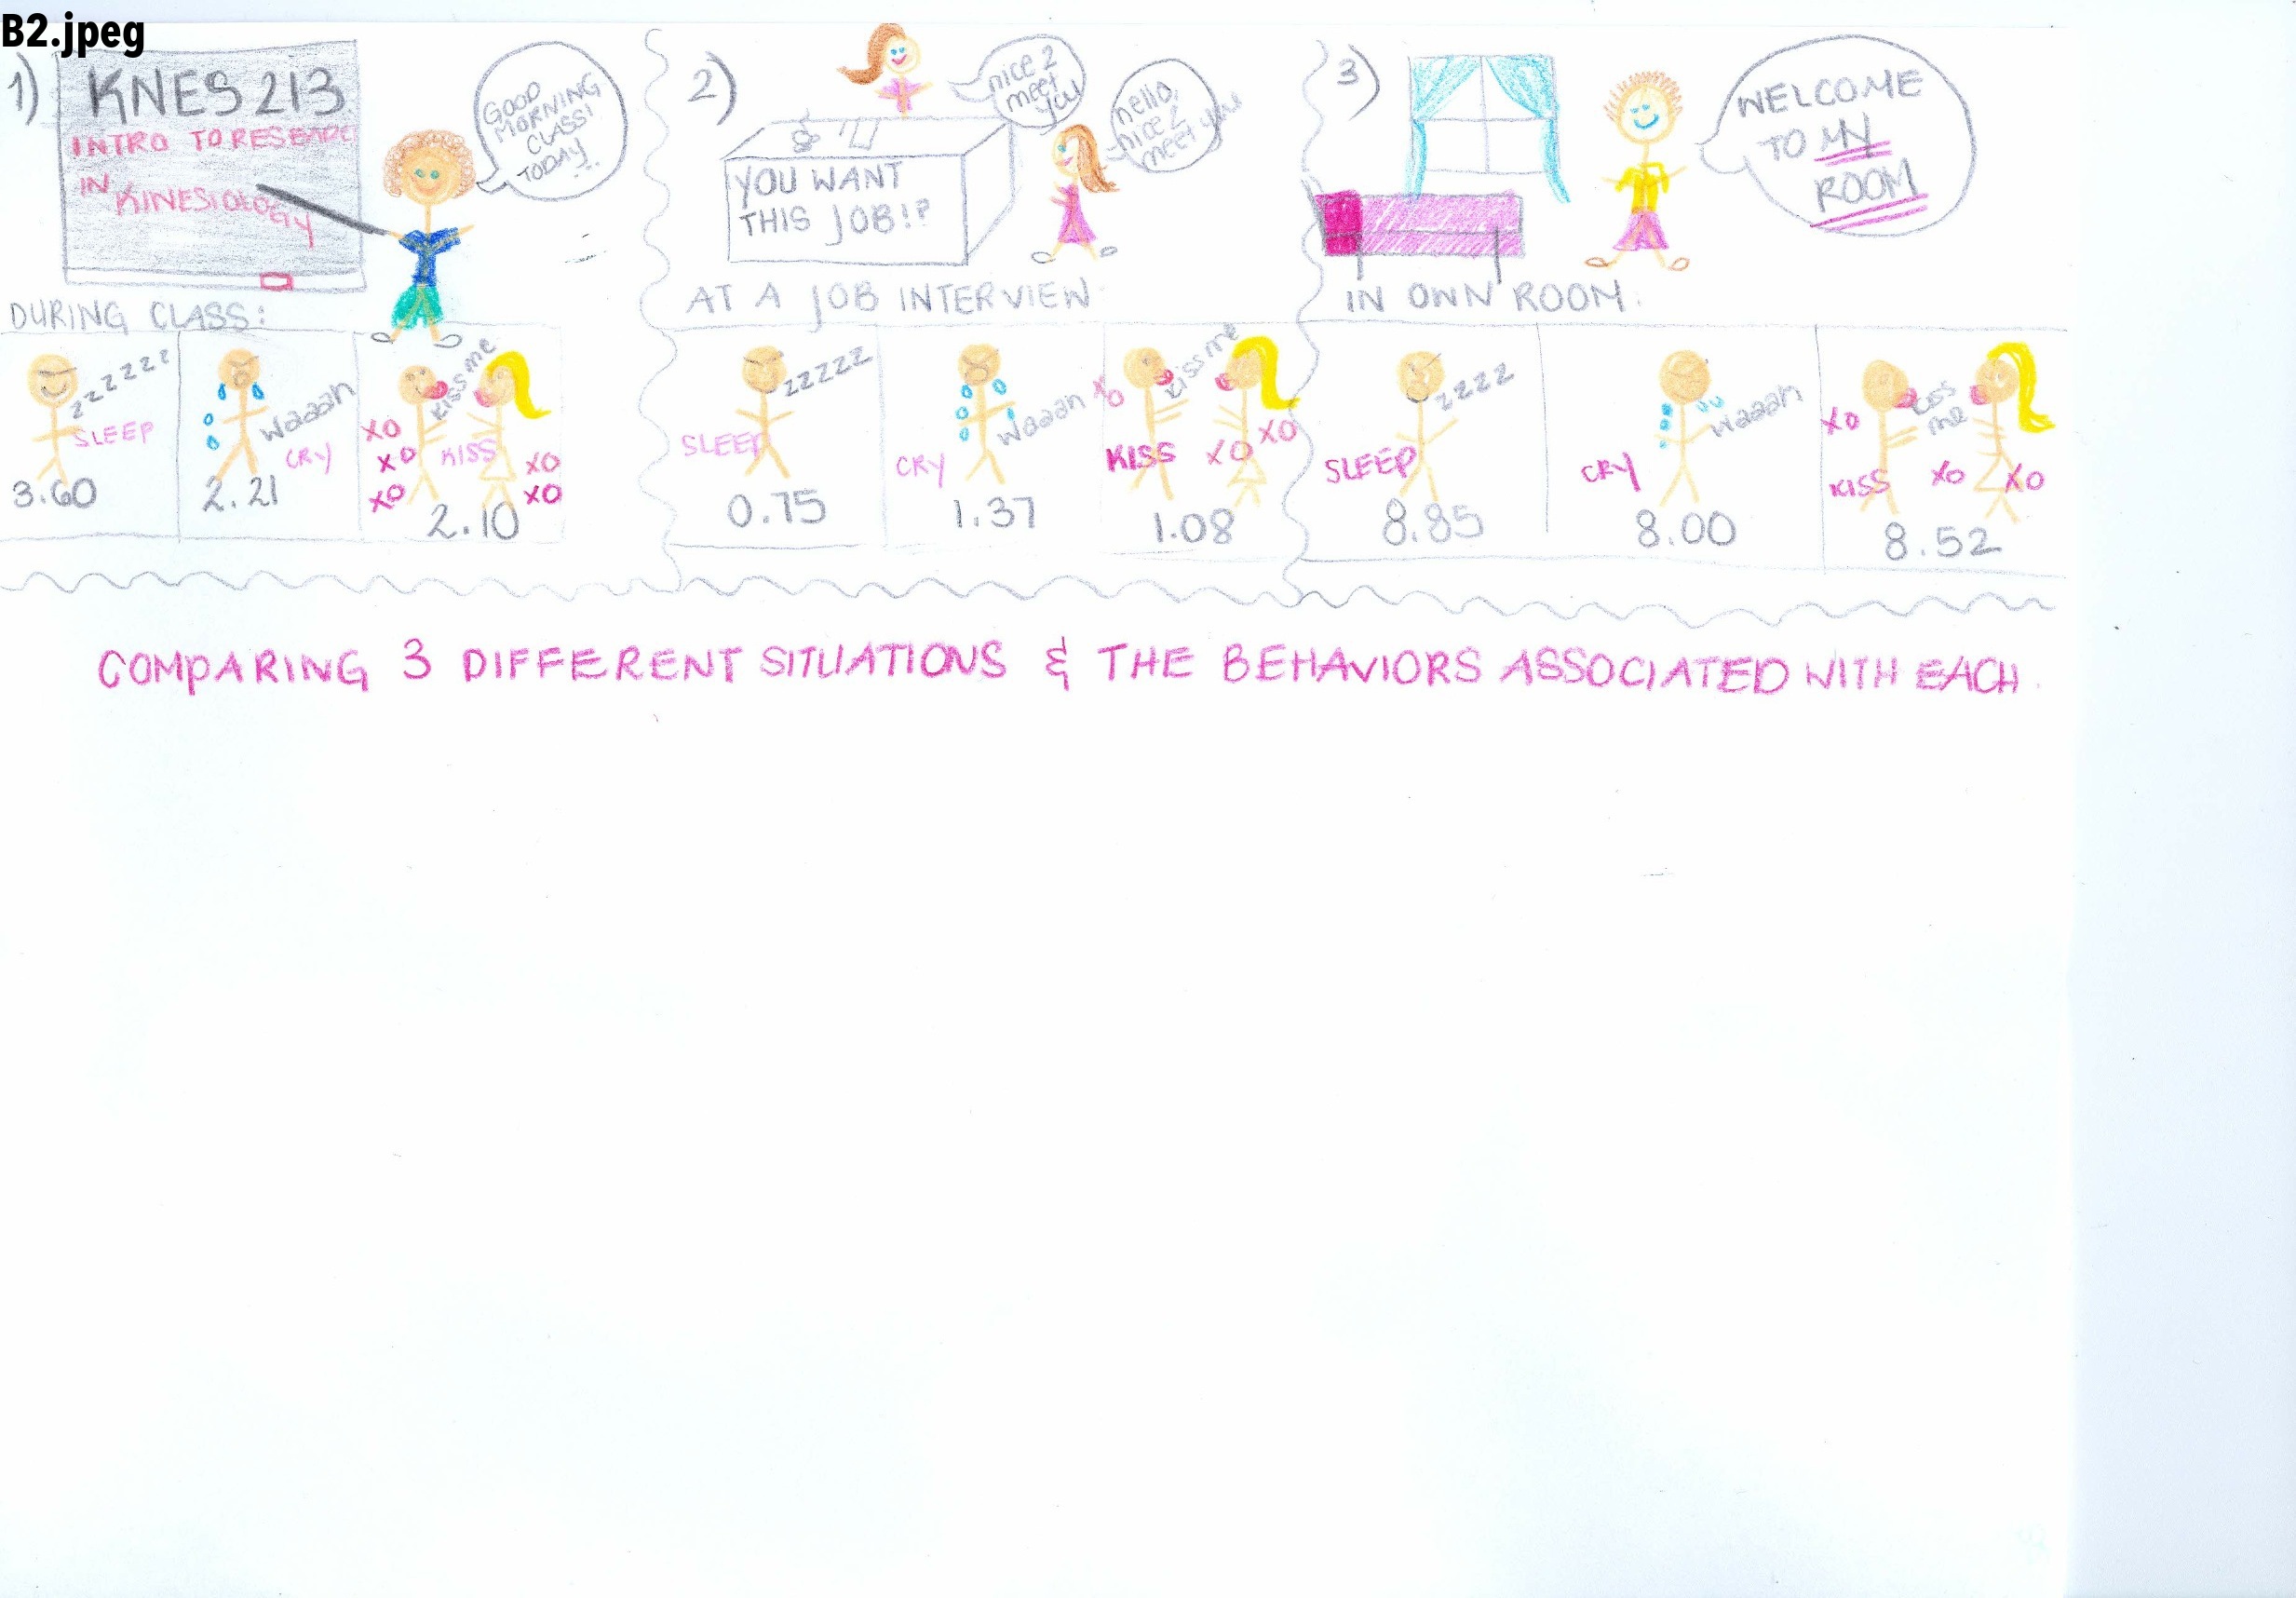 B2.jpeg
1)
KNES 213
INTRO TO RESEARC
IN
KINESIOLOGY
GOOD
MORNING
CLASS!
TODAY...
DURING CLASS:
zzzzzzz
SLEEP
3.60
waaah
CRY
2.21
kiss me
XO
XO
XO
KISS
XO
XO
2.10
2)
nice 2
meet
you
hello,
nice 2
meet you
YOU WANT
THIS JOB!?
AT A JOB INTERVIEW:
zzzzz
SLEEP
0.75
waaah
CRY
1.37
XO
kiss me
KISS
XO
XO
1.08
3)
WELCOME
TO MY
ROOM
IN OWN ROOM:
zzzz
SLEEP
8.85
waaah
CRY
8.00
kiss
me
XO
KISS
XO
XO
8.52
COMPARING 3 DIFFERENT SITUATIONS & THE BEHAVIORS ASSOCIATED WITH EACH.